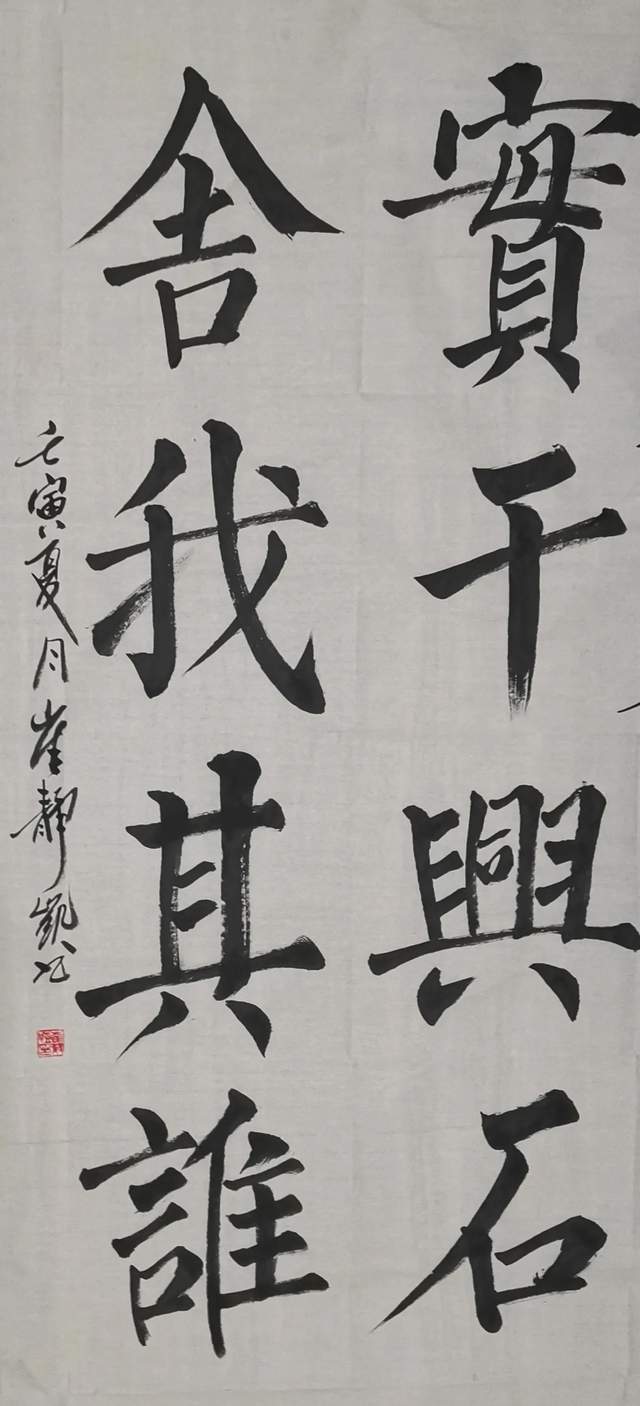 實干興石
舍我其誰
壬寅夏月崔靜凱书